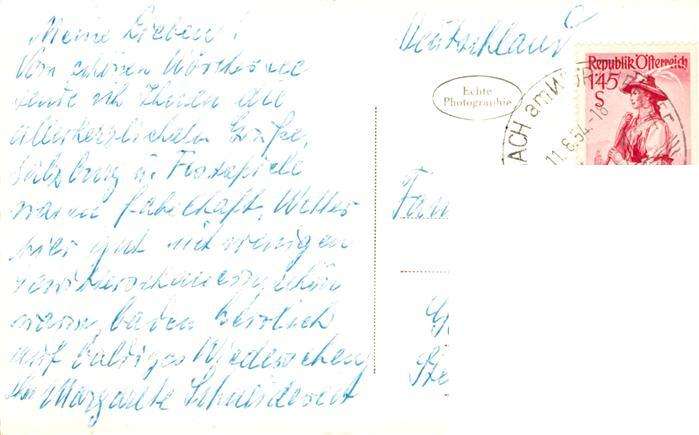 Meine Lieben!
Vom schönen Wörthersee
sende ich Ihnen die
allerherzlichsten Grüße,
Salzburg u. Festspiele
waren fabelhaft, Wetter
hier gut mit wenigen
schön
warm, baden herrlich
auf baldiges Wiedersehen
Ihre Margarete
Deutschland
Echte
Photographie
ACH am WÖR
11.8.54-18
Republik Österreich
1'45
S
Fam